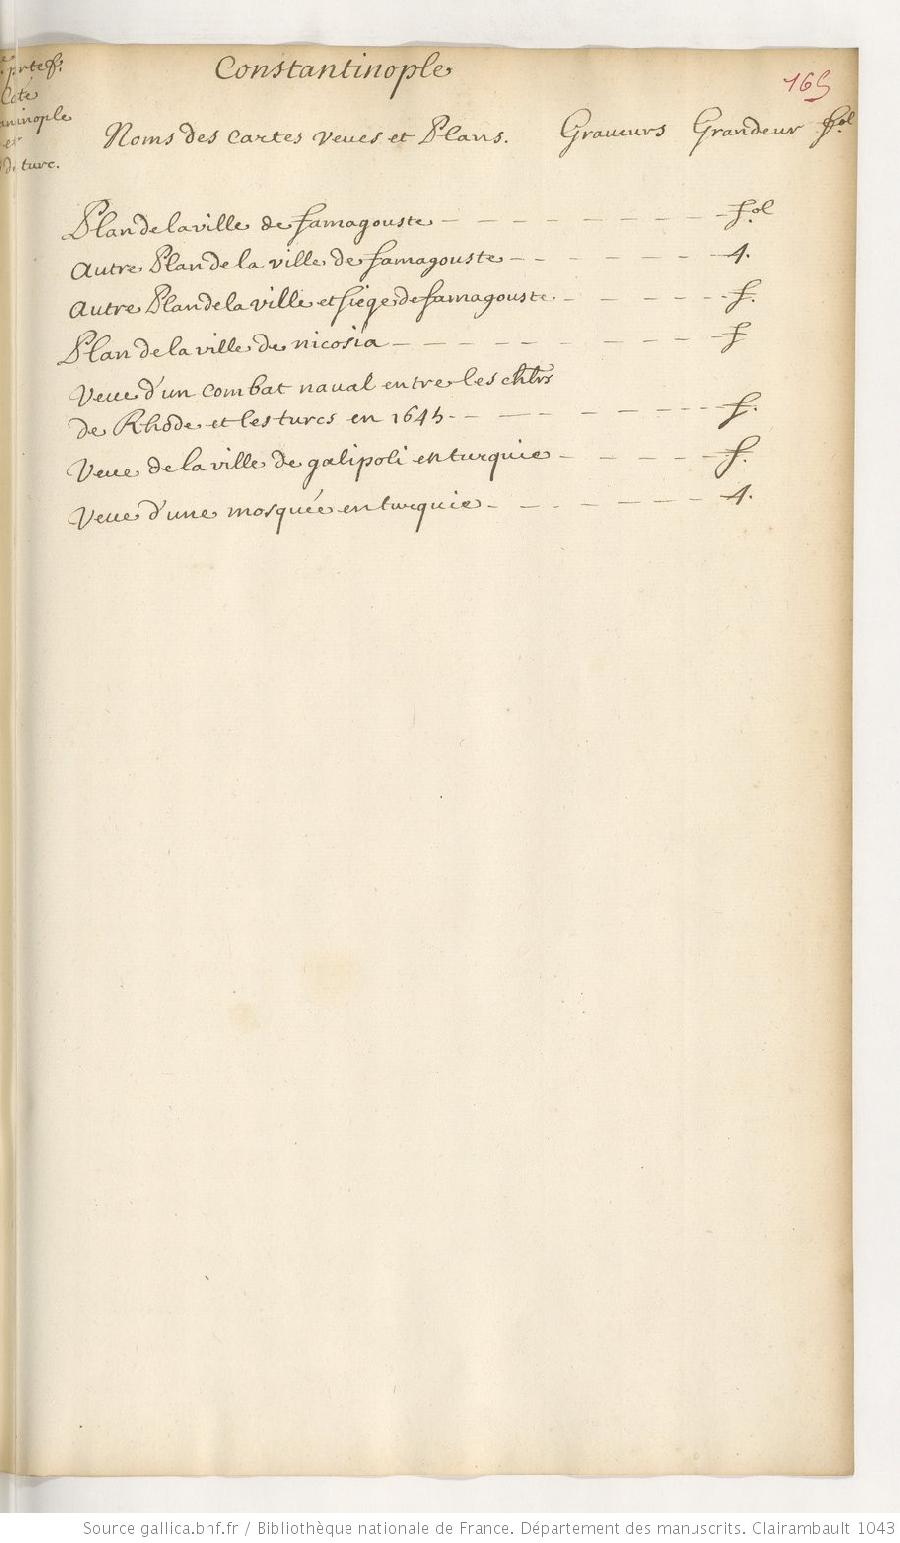 Constantinople
165
prtef.
Coté
aninople
et
turc.
Noms des cartes veues et Plans. Graueurs Grandeur fol
Plan de la ville de famagouste - - - - - - - - fol
Autre Plan de la ville de famagouste - - - - - - 4.
Autre Plan de la ville et siege de famagouste - - - - - f.
Plan de la ville de nicosia - - - - - - - - f
Veue d'un combat naual entre les chlrs
de Rhode et les turcs en 1645 - - - - - - - f.
Veue de la ville de galipoli en turquie - - - - - f.
Veue d'une mosquée en turquie - - - - - - - 4.
Source gallica.bnf.fr / Bibliothèque nationale de France. Département des manuscrits. Clairambault 1043